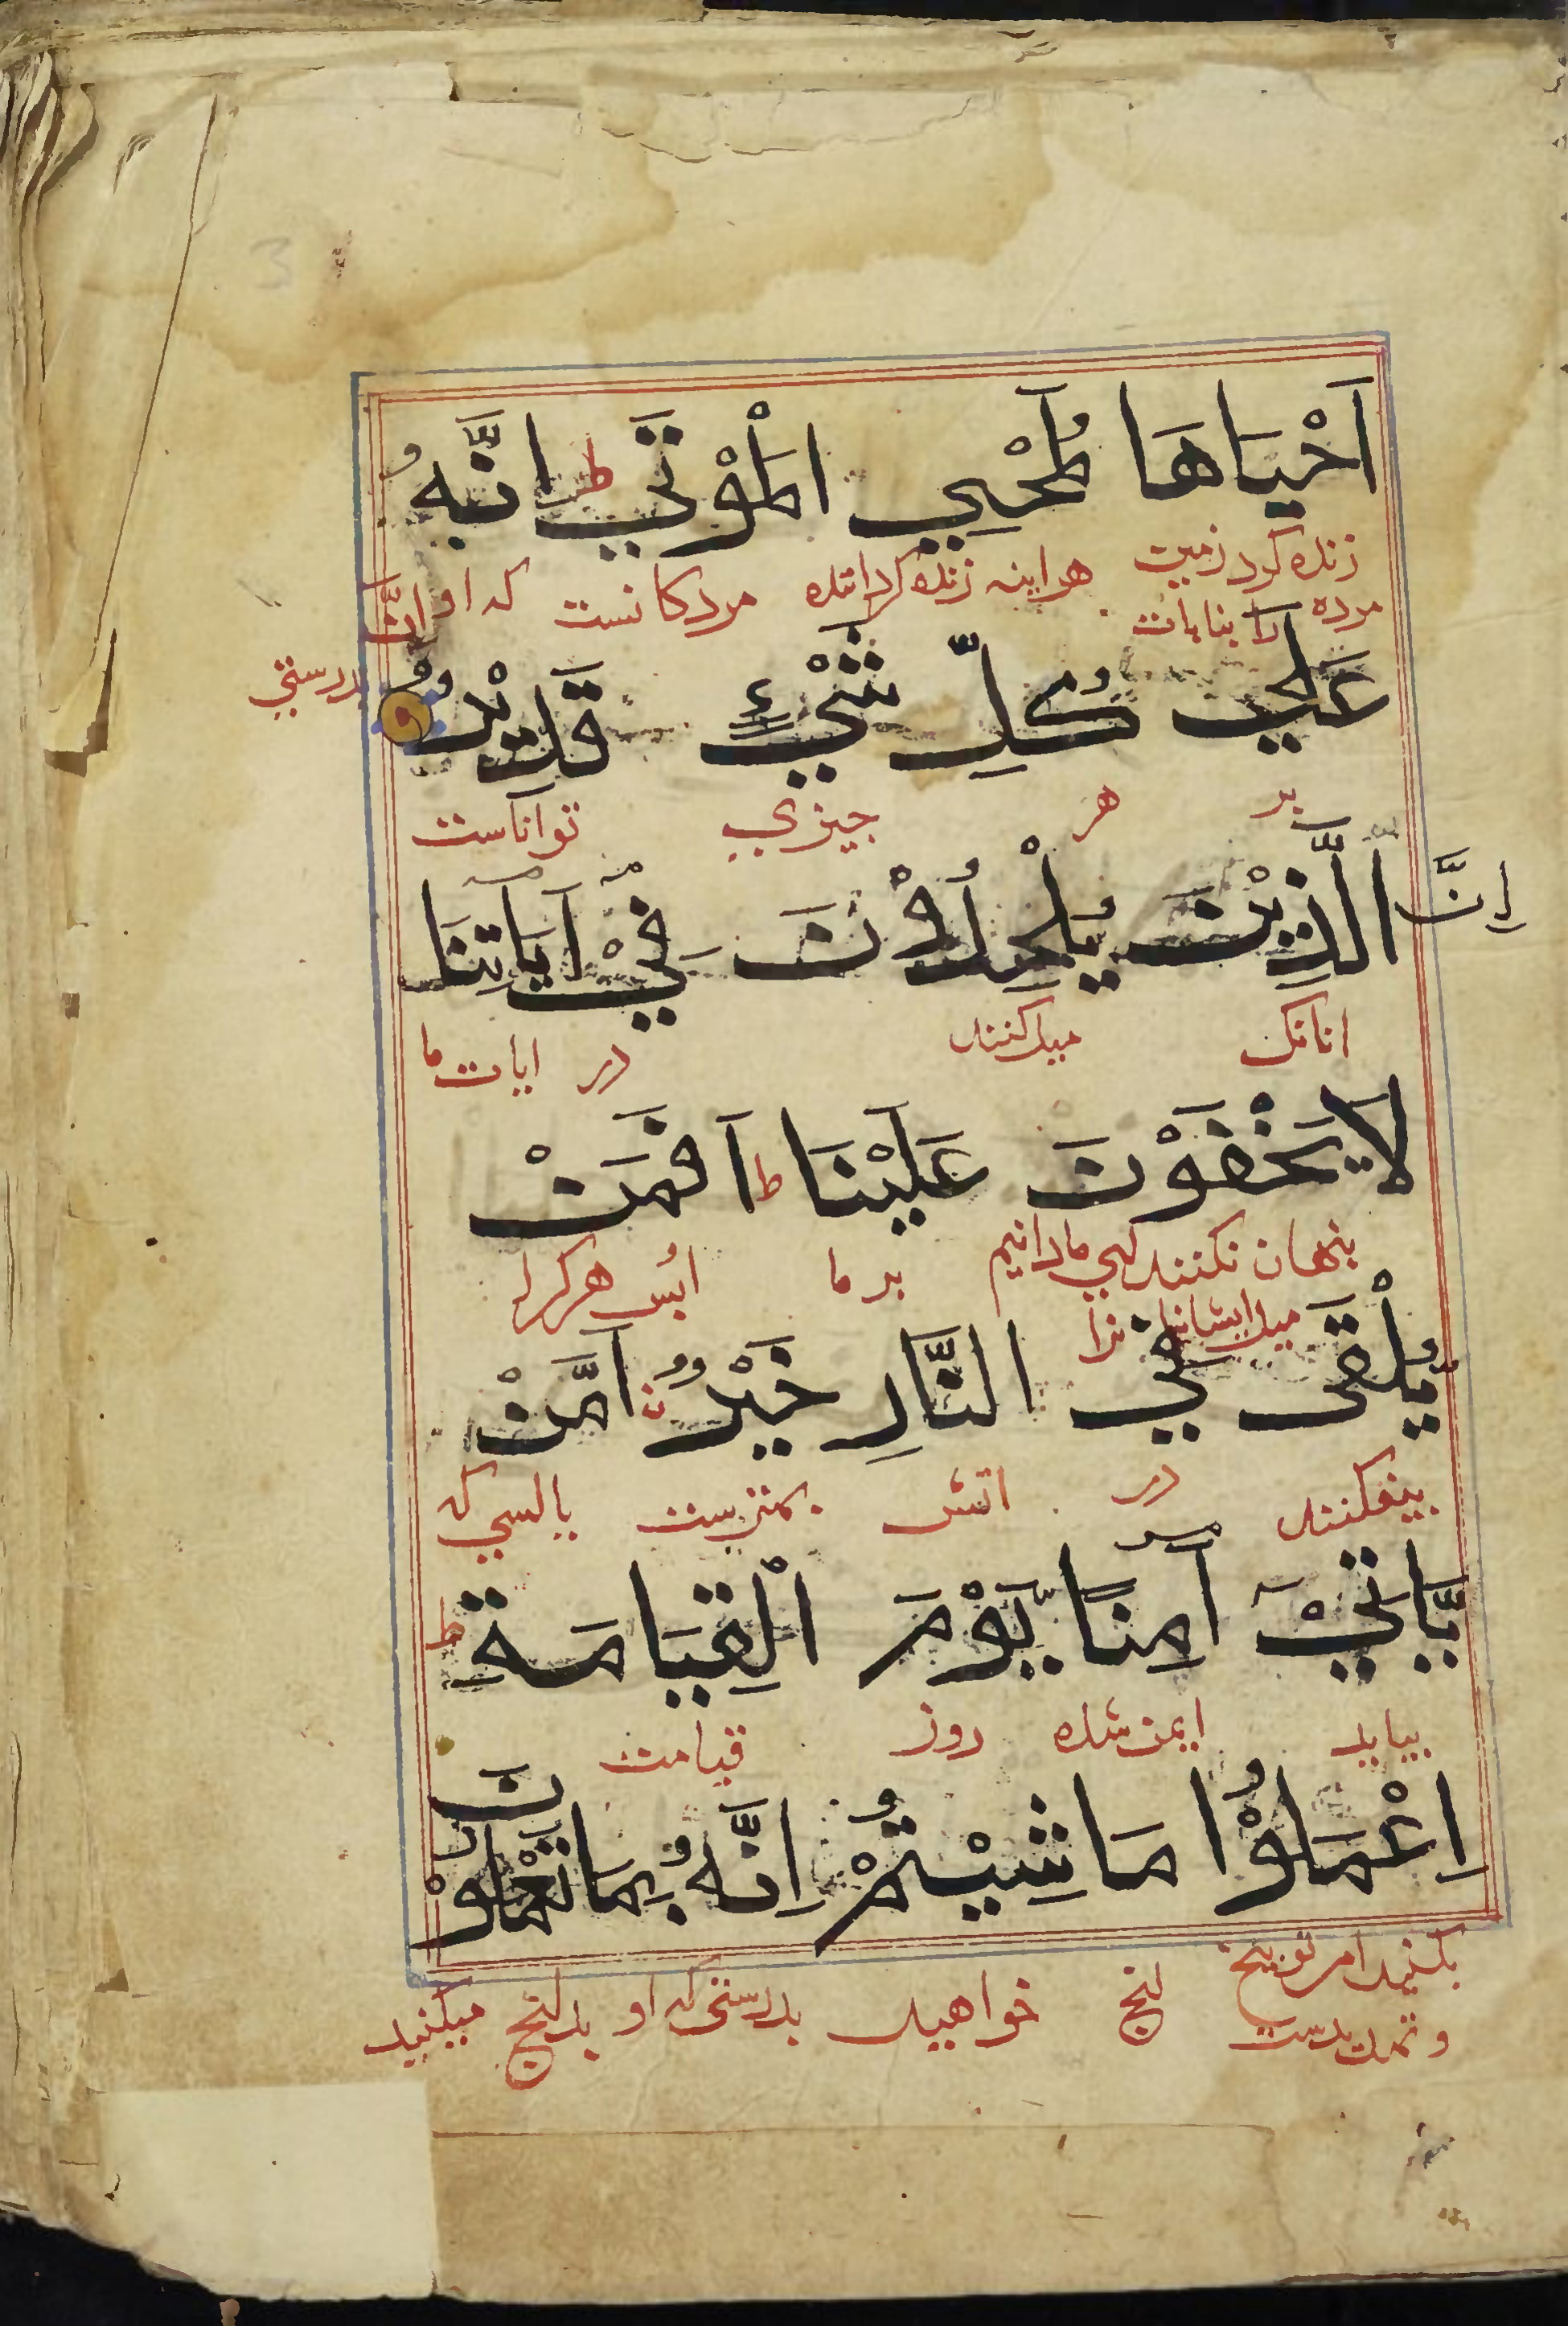 اَحْيَاهَا لَمُحْيِي الْمَوْتَي ط اِنَّهُ
زنده کرد زمین هراینه زنده کرداننده مردکانست که او اِنَّ
مرده را بنابات
عَلَي كُلِّ شَيْءٍ قَدِيْرٌ
بدرستي
بر هر جیزي تواناست
اِنَّ الَّذِيْنَ يُلْحِدُوْنَ فِيْ آيَاتِنَا
انانک میل کنند در ایات ما
لَا يَخْفَوْنَ عَلَيْنَا ط اَفَمَنْ
بنهان نکنند کي ما دانیم بر ما ابس هرکرا
میل ایشانرا
يُلْقَى فِي النَّارِ خَيْرٌ اَمَّنْ
بیفکنند در اتش بهتر ست یا کسي که
يَّاتِيْ آمِنًا يَّوْمَ الْقِيَامَةِ ط
بیاید ایمن شده روز قیامت
اِعْمَلُوْا مَا شِيْتُمْ اِنَّهُ بِمَا تَعْمَلُوْنَ
بکنید امر توبیخ انج خواهید بدرستي که او بدانج میکنید